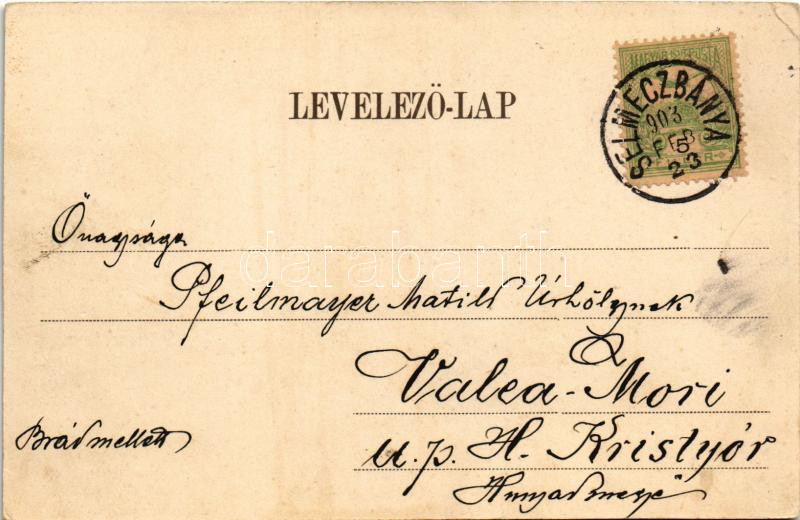 LEVELEZÖ-LAP
MAGYAR KIR. POSTA
SELMECZBÁNYA
903
FEB
5
23
Önagysága
darabanth
Pfeilmayer Matild Úrhölgynek
Valea-Mori
Brád mellett
u. p. H. Kristyór
Hunyadmegye